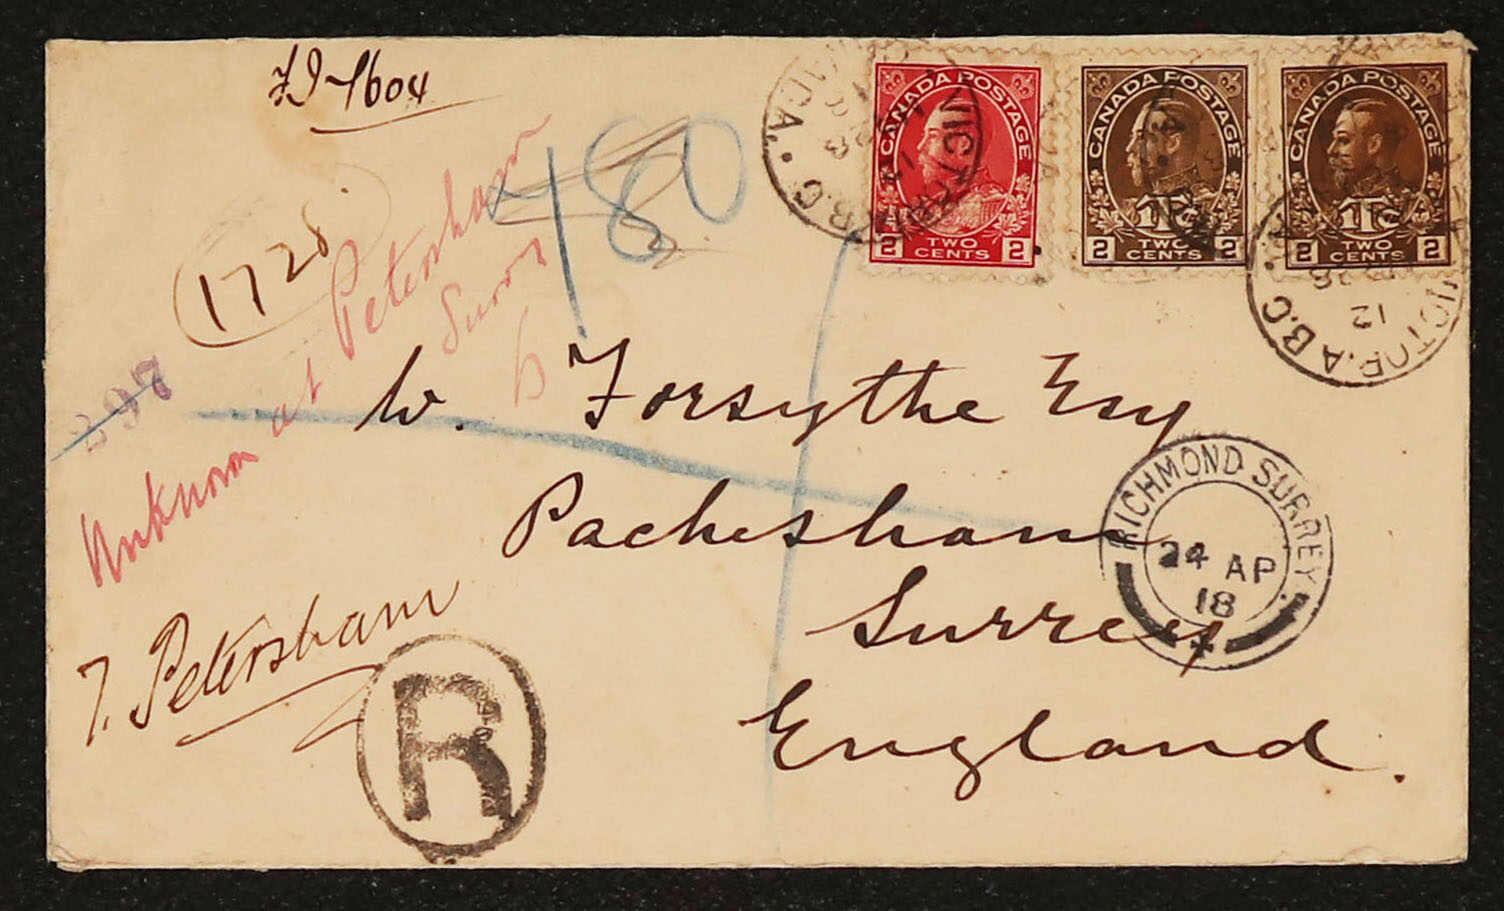 480
1728
297
Unknown at Petersham
Surrey
W. Forsythe Esq
Pachesham
Surrey
England.
T. Petersham
R
CANADA POSTAGE
2 TWO CENTS 2
CANADA POSTAGE
1Tc
2 TWO CENTS 2
CANADA POSTAGE
1Tc
2 TWO CENTS 2
VICTORIA B.C.
CANADA
VICTORIA B.C.
12
RICHMOND SURREY.
24 AP
18